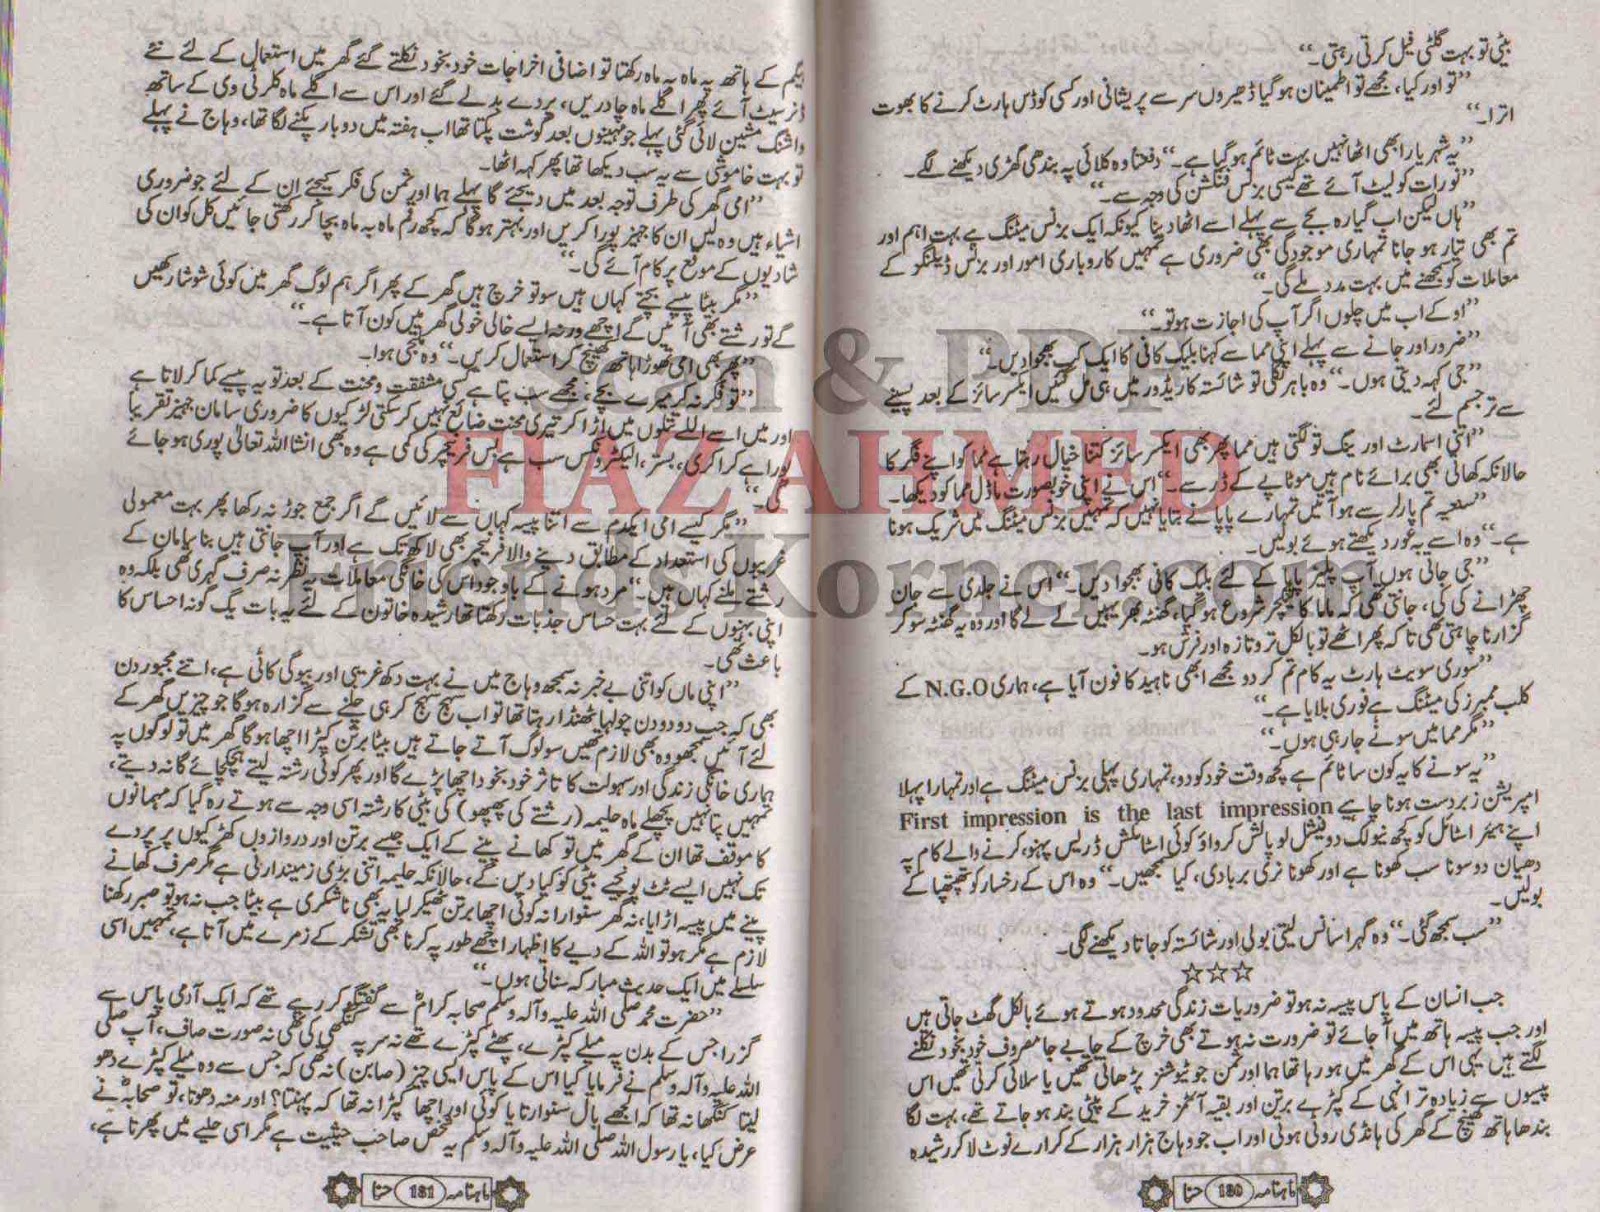 بیٹی تو بہت گلٹی فیل کرتی رہتی۔“
”تو اور کیا، مجھے تو اطمینان ہو گیا ڈھیروں سر سے پریشانی اور کسی کو ڈس ہارٹ کرنے کا بھوت
اترا۔“
”یہ شہریار ابھی اٹھا نہیں بہت ٹائم ہو گیا ہے۔“ دفعتاً وہ کلائی پہ بندھی گھڑی دیکھنے لگے۔
”نورات کو لیٹ آئے تھے کیسی بزنس فنکشن کی وجہ سے۔“
”ہاں لیکن اب گیارہ بجے سے پہلے اسے اٹھا دینا کیونکہ ایک بزنس میٹنگ ہے بہت اہم اور
تم بھی تیار ہو جانا تمہاری موجودگی بھی ضروری ہے تمہیں کاروباری امور اور بزنس ڈیلنگز کے
معاملات کو سمجھنے میں بہت مدد ملے گی۔“
”او کے اب میں چلوں اگر آپ کی اجازت ہو تو۔“
”ضرور اور جانے سے پہلے اپنی مما سے کہنا بلیک کافی کا ایک کپ بھجوا دیں۔“
”جی کہہ دیتی ہوں۔“ وہ باہر نکلی تو شائستہ کاریڈور میں ہی مل گئیں ایکسرسائز کے بعد پسینے
سے تر جسم لئے۔
”اتنی اسمارٹ اور ینگ تو لگتی ہیں مما پھر بھی ایکسرسائز کتنا خیال رہتا ہے مما کو اپنے فگر کا
حالانکہ کھاتی بھی برائے نام ہیں موٹاپے کے ڈر سے۔“ اس نے اپنی خوبصورت ماڈل مما کو دیکھا۔
”سعیہ تم پارلر سے ہو آتیں تمہارے پاپا نے بتایا نہیں کہ تمہیں بزنس میٹنگ میں شریک ہونا
ہے۔“ وہ اسے بہ غور دیکھتے ہوئے بولیں۔
”جی جاتی ہوں آپ پلیز پاپا کے لئے بلیک کافی بھجوا دیں۔“ اس نے جلدی سے جان
چھڑانے کی کی، جانتی تھی کہ ماما کا لیکچر شروع ہو گیا، گھنٹہ بھر یہیں لے لے گا اور وہ یہ گھنٹہ سو کر
گزارنا چاہتی تھی تا کہ پھر اٹھے تو بالکل تر و تازہ اور فرش ہو۔
”سوری سویٹ ہارٹ یہ کام تم کر دو مجھے ابھی ناہید کا فون آیا ہے، ہماری N.G.O کے
کلب ممبرز کی میٹنگ ہے فوری بلایا ہے۔“
”مگر مما میں سونے جا رہی ہوں۔“
”یہ سونے کا یہ کون سا ٹائم ہے کچھ وقت خود کو دو، تمہاری پہلی بزنس میٹنگ ہے اور تمہارا پہلا
امپریشن زبردست ہونا چاہیے First impression is the last impression
اپنے ہیئر اسٹائل کو کچھ نیو لک دو فیشل لو پالش کرواؤ کوئی اسٹائلش ڈریس پہنو، کرنے والے کام پہ
دھیان دو سونا سب کھونا ہے اور کھونا نری بربادی، کیا سمجھیں۔“ وہ اس کے رخسار کو تھپتھپا کے
بولیں۔
”سب سمجھ گئی۔“ وہ گہرا سانس لیتی بولی اور شائستہ کو جاتا دیکھنے لگی۔
☆☆☆
جب انسان کے پاس پیسہ نہ ہو تو ضروریات زندگی محدود ہوتے ہوئے بالکل گھٹ جاتی ہیں
اور جب پیسہ ہاتھ میں آ جائے تو ضرورت نہ ہوتے بھی خرچ کے جا بے جا مصروف خود بخود نکلنے
لگتے ہیں یہی اس کے گھر میں ہو رہا تھا ہما اور ثمن جو ٹیوشنز پڑھاتی تھیں یا سلائی کرتی تھیں اس
پیسوں سے زیادہ تر انہی کے کپڑے برتن اور بقیہ آئٹمز خرید کے پیٹی بند ہو جاتے تھے، بہت لگا
بندھا ہاتھ کھینچ کے گھر کی ہانڈی روٹی ہوتی اور اب جو وہاج ہزار ہزار کے کرارے نوٹ لا کر رشیدہ
ماہنامہ 180 حنا
بیگم کے ہاتھ پہ ماہ بہ ماہ رکھتا تو اضافی اخراجات خود بخود نکلتے گئے گھر میں استعمال کے لئے نئے
ڈنر سیٹ آئے پھر اگلے ماہ چادریں، پردے بدلے گئے اور اس سے اگلے ماہ کلر ٹی وی کے ساتھ
واشنگ مشین لائی گئی پہلے جو مہینوں بعد گوشت پکتا تھا اب ہفتہ میں دو بار پکنے لگا تھا، وہاج نے پہلے
تو بہت خاموشی سے یہ سب دیکھا تھا پھر کہہ اٹھا۔
”امی گھر کی طرف توجہ بعد میں دیجئے گا پہلے ہما اور ثمن کی فکر کیجئے ان کے لئے جو ضروری
اشیاء ہیں وہ لیں ان کا جہیز پورا کریں اور بہتر ہو گا کہ کچھ رقم ماہ بہ ماہ بچا کر رکھتی جائیں کل کو ان کی
شادیوں کے موقع پر کام آئے گی۔“
”مگر بیٹا پیسے بچتے کہاں ہیں سو تو خرچ ہیں گھر کے پھر اگر ہم لوگ گھر میں کوئی شو شا رکھیں
گے تو رشتے بھی آئیں گے اچھے ورنہ ایسے خالی خولی گھر میں کون آتا ہے۔“
”پھر بھی امی تھوڑا ہاتھ کھینچ کر استعمال کریں۔“ وہ ملتجی ہوا۔
”تو فکر نہ کر میرے بچے، مجھے سب پتا ہے کسی مشقت و محنت کے بعد تو یہ پیسے کما کر لاتا ہے
اور میں اسے اللے تللوں میں اڑا کر تیری محنت ضائع نہیں کر سکتی لڑکیوں کا ضروری سامان جہیز تقریباً
پورا ہے کراکری، بستر، الیکٹرونکس سب ہے بس فرنیچر کی کمی ہے وہ بھی انشااللہ تعالیٰ پوری ہو جائے
گی۔“
”مگر کیسے امی ایکدم سے اتنا پیسہ کہاں سے لائیں گے اگر جمع جوڑ نہ رکھا پھر بہت معمولی
غریبوں کی استعداد کے مطابق دینے والا فرنیچر بھی لاکھ تک ہے اور آپ جانتی ہیں بنا سامان کے
رشتے ملنے کہاں ہیں۔“ مرد ہونے کے باوجود اس کی خانگی معاملات پہ نظر نہ صرف گہری تھی بلکہ وہ
اپنی بہنوں کے لئے بہت حساس جذبات رکھتا تھا رشیدہ خاتون کے لئے یہ بات یک گونہ احساس کا
باعث تھی۔
”اپنی ماں کو اتنی بے خبر نہ سمجھ وہاج میں نے بہت دکھ غریبی اور بیوگی کاٹی ہے، اتنے مجبور دن
بھی کہ جب دو دو دن چولہا ٹھنڈا رہتا تھا تو اب سمجھ سمجھ کر ہی چلنے سے گزارہ ہو گا جو چیزیں گھر کے
لئے آئیں سمجھو وہ بھی لازم تھیں سو لوگ آتے جاتے ہیں بیٹا برتن کپڑا اچھا ہو گا گھر میں تو لوگوں پہ
ہماری خانگی زندگی اور سہولت کا تاثر خود بخود اچھا پڑے گا اور پھر کوئی رشتہ لیتے ہچکچائے گا نہ دیتے،
تمہیں پتا نہیں پچھلے ماہ حلیمہ (رشتے کی پھپھو) کی بیٹی کا رشتہ اسی وجہ سے ہوتے رہ گیا کہ مہمانوں
کا موقف تھا ان کے گھر میں تو کھانے پینے کے ایک جیسے برتن اور دروازوں کھڑکیوں پر پردے
تک نہیں ایسے ٹٹ پونجیے بیٹی کو کیا دیں گے، حالانکہ حلیمہ اتنی بڑی زمیندارنی ہے مگر صرف کھانے
پینے میں پیسہ اڑایا، نہ گھر سنوارا نہ کوئی اچھا برتن ٹھیکر لیا یہ بھی ناشکری ہے بیٹا جب نہ ہو تو صبر رکھنا
لازم ہے مگر ہو تو اللہ کے دیے کا اظہار اچھے طور پہ کرنا بھی تشکر کے زمرے میں آتا ہے، تمہیں اسی
سلسلے میں ایک حدیث مبارکہ سناتی ہوں۔“
”حضرت محمد صلی اللہ علیہ وآلہ وسلم صحابہ کرامؓ سے گفتگو کر رہے تھے کہ ایک آدمی پاس سے
گزرا جس کے بدن پہ میلے کپڑے، پھٹے کپڑے تھے نہ سر پہ کنگھی کی تھی نہ صورت صاف، آپ صلی
اللہ علیہ وآلہ وسلم نے فرمایا کیا اس کے پاس ایسی چیز (صابن) نہ تھی کہ جس سے وہ میلے کپڑے دھو
لیتا کنگھا نہ تھا کہ الجھے بال سنوارتا یا کوئی اور اچھا کپڑا نہ تھا کہ پہنتا؟ اور منہ دھوتا، تو صحابہؓ نے
عرض کیا، یا رسول اللہ صلی اللہ علیہ وآلہ وسلم یہ شخص صاحب حیثیت ہے مگر اسی حلیے میں پھرتا ہے،
ماہنامہ 181 حنا
Scan & PDF
FIAZ AHMED
Friends Korner.com